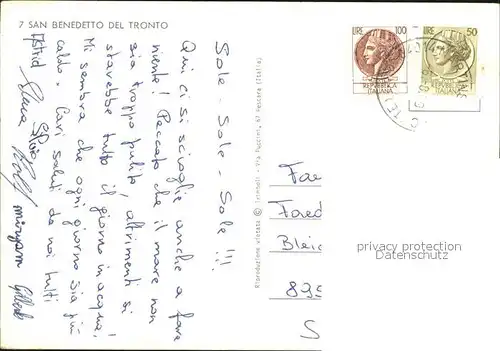 7 SAN BENEDETTO DEL TRONTO
Sole - Sole - Sole !!!
Qui ci si scioglie anche a fare
niente! Peccato che il mare non
sia troppo pulito, altrimenti si
starebbe tutto il giorno in acqua!
Mi sembra che ogni giorno sia più
caldo. Cari saluti da noi tutti
Astrid
Elena
Silvia
Riproduzione vietata © Trimboli - Via Puccini, 67 Pescara (Italia)
LIRE 100
REPUBBLICA
ITALIANA
LIRE 50
REPUBBLICA
ITALIANA
Fae
Faed
Bleic
895
S
privacy protection
Datenschutz